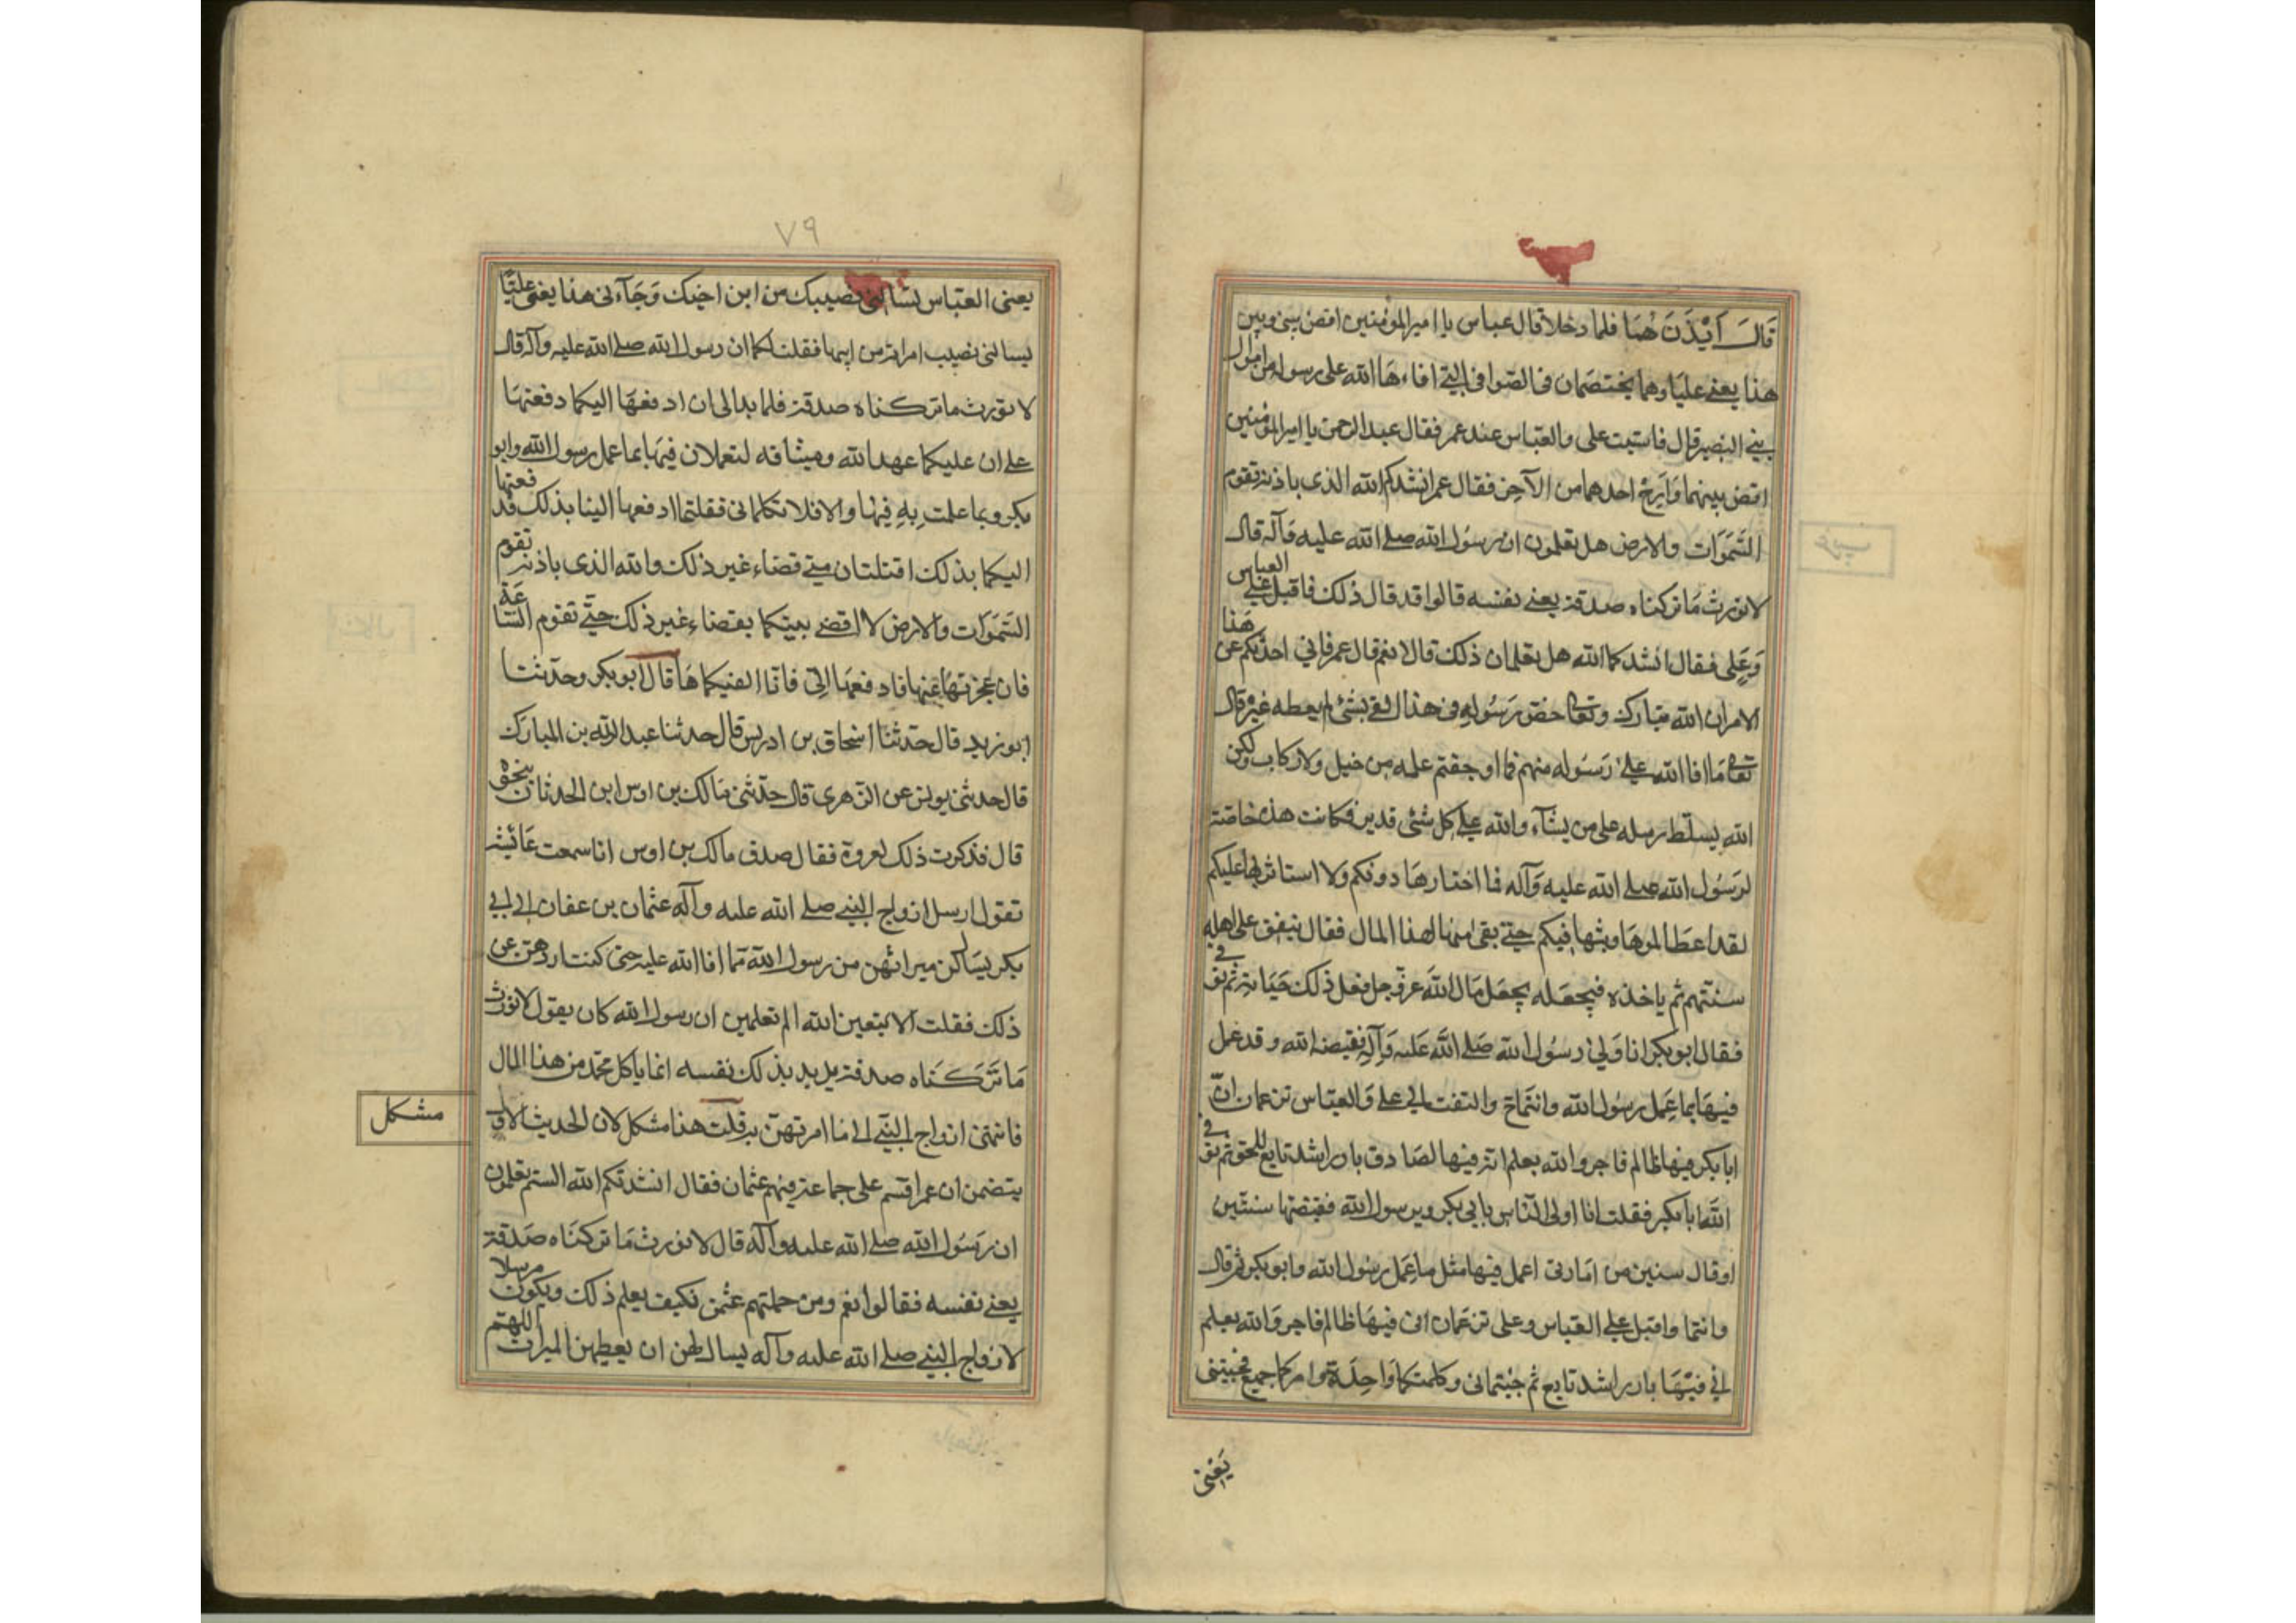 قَالَ اَيْذَنْ لهُمَا فلما دخلا قال عباس يا اميرالمؤمنين اقض بينى وبين
هذا يعنى عليا وهما يختصمان فى الصوافى التى افاءها الله على رسوله من اموال
بنى النضير قال فاستبت على والعباس عند عمر فقال عبدالرحمن يا اميرالمؤمنين
اقض بينهما وارح احدهما من الآخر فقال عمر انشدكم الله الذى باذنه تقوم
السَّمَوَات والارض هل تعلمون ان رسُول الله صلى الله عليه وَآله قال
لا نورث مَا تركناه صدقة يعنى نفسه قالوا قد قال ذلك فاقبل على العباس
وَعَلى فقال انشدكما الله هل تعلمان ذلك قالا نعم قال عمر فانى احدثكم عن هَذا
الامر ان الله تبارك وتعالى خص رَسُوله فى هذا الفى بشئ لم يعطه غيره قال
تعالى مَا افا الله على رَسُوله منهم فما اوجفتم عليه من خيل ولا ركاب ولكن
الله يسلّط رسله على من يشآء والله على كل شئى قدير فكانت هذه خاصّة
لرَسُول الله صلى الله عليه وَآله فما اختارهَا دونكم وَلا استاثر بها عليكم
لقد اعطاكموهَا وبثها فيكم حتى بقى منها هذا المال فقال ينفق على اهله
سنتهم ثم ياخذه فيجعَله يجعَل مَال الله عزّ وجل فعل ذلك حَيَاته ثم توفى
فقال ابو بكر انا وَلى رسُول الله صَلى الله عَليه وَآلِه فقبضه الله وقد عمل
فيهَا بما عَمِل رسُول الله وانتماح والتفت الى على وَالعبّاس تزعمان انّ
ابا بكر فيها ظالم فاجر والله يعلم انّه فيها لصَادق بار راشد تابع للحق ثم توفى
الله ابا بكر فقلت انا اولى الناس بابى بكر وبرسول الله فقبضتها سنتين
او قال سنين من امَارتى اعمل فيها مثل ما عَمل رسُول الله وابو بكر ثم قال
وانتما واقبل على العَباس وعلى تزعمان انى فيهَا ظالم فاجر وَالله يعلم
انى فيْهَا بار راشد تابع ثم جئتمانى وكلمتكما وَاحِدَة وامركما جميع فجئتنى
يَعْنى
٧٩
يعنى العبّاس تسالنى نصيبك من ابن اخيك وَجَآءنى هذا يعنى عليّا
يسالنى نصيب امراته من ابيها فقلت لكما ان رسول الله صلى الله عليه وآله قال
لا نورث ما تركناه صدقة فلما بدا لى ان ادفعهَا اليكما دفعتهَا
على ان عليكما عهد الله وميثاقه لتعملان فيها بما عمل رسول الله وابو
بكر وبما عملت بِهِ فيها والا فلا تكلمانى فقلتما ادفعها الينا بذلك فدفعتها
اليكما بذلك افتلتمسان منى قضاء غير ذلك والله الذى باذنه تقوم
السَّمَوَات والارض لا اقضى بينكما بقضاء غير ذلك حتّى تقوم السّاعَة
فان عجزتما عنها فادفعهَا الىّ فانا اكفيكماهَا قال ابو بكر وحدّثنا
ابو زيد قال حَدثنا اسْحاق بن ادريس قال حدثنا عبدالله بن المبارك
قال حدثنى يونس عن الزهرى قال حدّثنى مَالك بن اوس ابن الحدثان بنحوه
قال فذكرت ذلك لعروة فقال صدق مالك بن اوس انا سمعت عَائيشة
تقول ارسل ازواج النبى صلى الله عليه وآله عثمان بن عفان الى ابى
بكر يسَال لهن ميراثهن من رسول الله ممّا افا الله عليه حتى كنت اردهن عن
ذلك فقلت الا تتقين الله الم تعلمين ان رسول الله كان يقول لا نورث
مَا تَرَكْنَاه صدقة يريد بذلك نفسه انما ياكل آل محمّد من هذا المال
فانتهى ازواج النبى الى مَا امرتهنّ به قلت هذا مشكل لان الحديث الاول
مشكل
يتضمن ان عمر اقسَم على جماعة فيهم عثمان فقال انشدتكم الله الستم تعلمون
ان رَسُول الله صلى الله عليه وآله قال لا نورث مَا تركنَاه صَدقة
يعنى نفسه فقالوا نعم ومن جملتهم عثمن فكيف يعلم ذلك ويكون مرسلا
لازواج النبى صلى الله عليه وآله يسال لهن ان يعطيهن الميراث اللهتم